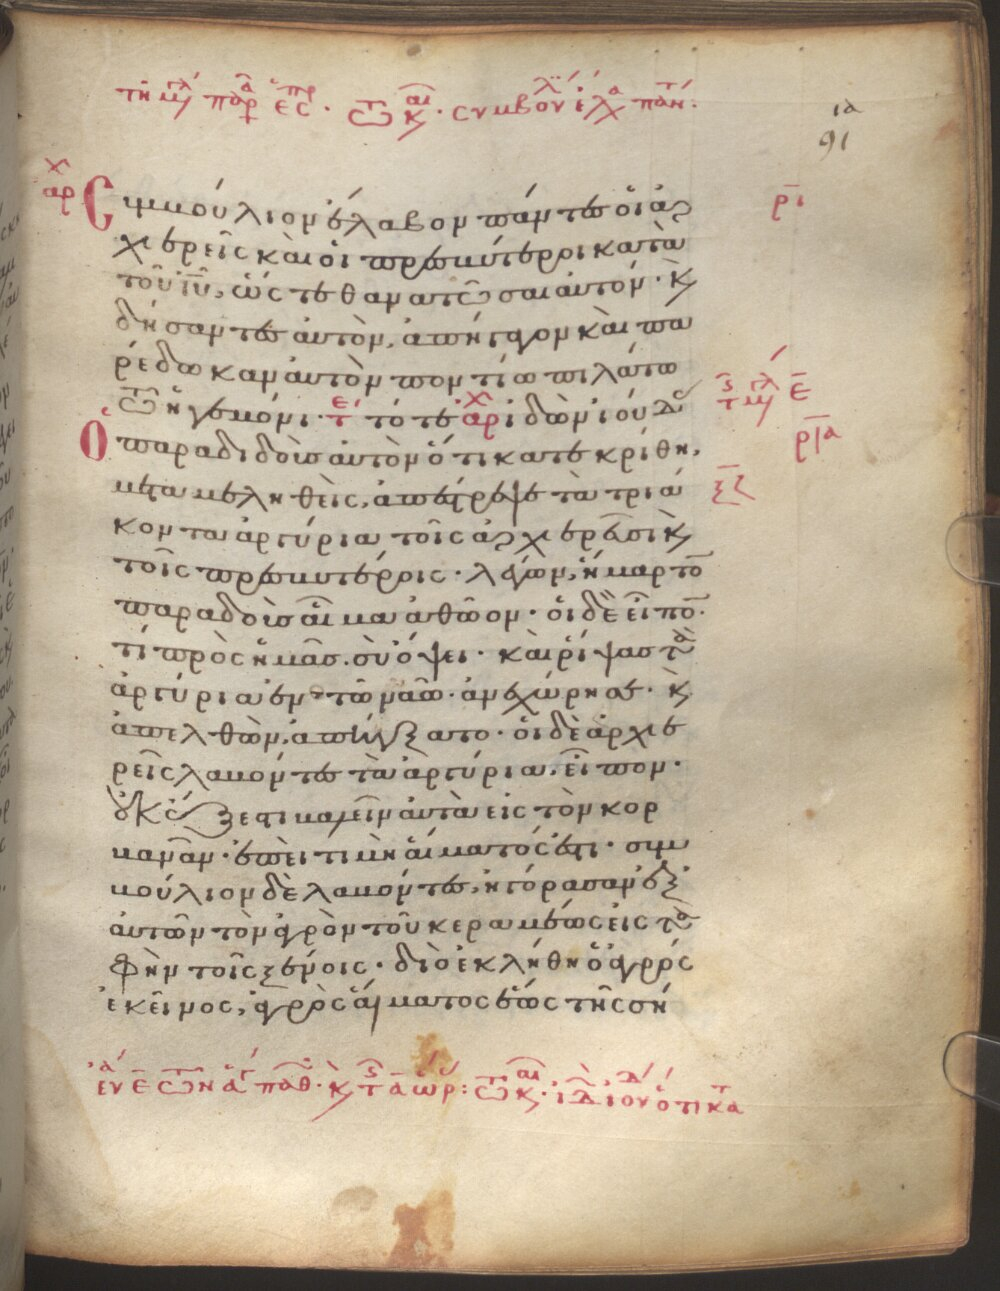 τη μγ παρ ες · τω κ · συμβουλι ελα παν ·
ια
91
αρχ
Συμμούλιον ἔλαβον πάντες οἱ ἀρ
χιερεῖς καὶ οἱ πρεσβύτεροι κατὰ
τοῦ ἰῦ, ὥστε θανατῶσαι αὐτόν · κ
δήσαντες αὐτὸν, ἀπήγαγον καὶ πα
ρέδωκαν αὐτὸν ποντίω πιλάτω
τῶ ἡγεμόνι · τε τότε αρχ ἰδὼν ἰούδας
ὁ παραδιδοὺς αὐτὸν ὅτι κατεκρίθη,
μεταμεληθεὶς, ἀπέστρεψε τὰ τριά
κοντα ἀργύρια τοῖς ἀρχιερεῦσι κ
τοῖς πρεσβυτέροις · λέγων, ἥμαρτον
παραδοὺς αἷμα ἀθῶον · οἱ δὲ εἶπον ·
τί πρὸς ἡμᾶς. σὺ ὄψει · καὶ ῥίψας τὰ
ἀργύρια ἐν τῶ ναῶ · ἀνεχώρησε · κ
ἀπελθὼν, ἀπήγξατο · οἱ δὲ ἀρχιε
ρεῖς λαβόντες τὰ ἀργύρια, εἶπον ·
οὐκ ἔξεστι βαλεῖν αὐτὰ εἰς τὸν κορ
βανᾶν · ἐπεὶ τιμὴ αἵματός ἐστι · συμ
βούλιον δὲ λαβόντες, ἠγόρασαν ἐξ
αὐτῶν τὸν ἀγρὸν τοῦ κεραμέως εἰς τα
φὴν τοῖς ξένοις · διὸ ἐκλήθη ὁ ἀγρὸς
ἐκεῖνος, ἀγρὸς αἵματος ἕως τῆς σή
ρι
ε
ρια